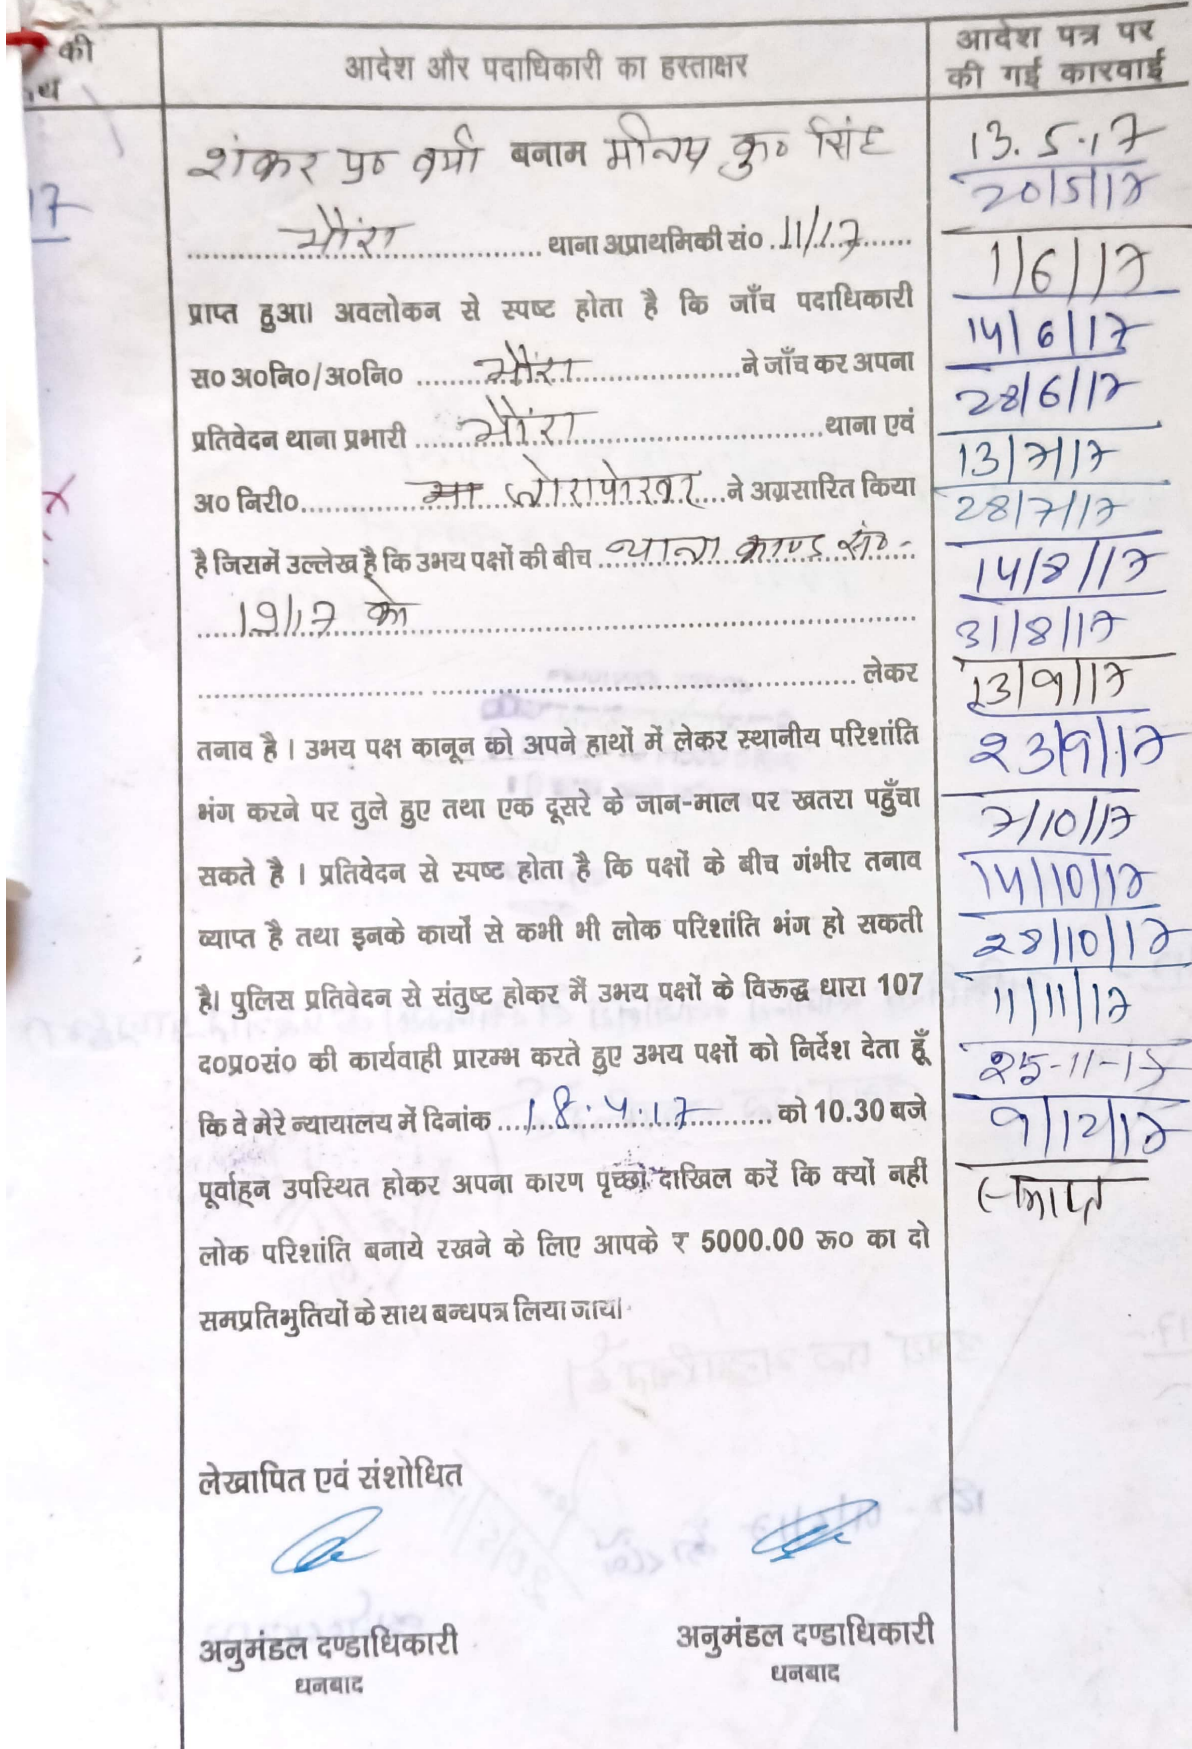 की
आदेश और पदाधिकारी का हस्ताक्षर
आदेश पत्र पर
की गई कारवाई
शंकर प्र० वर्मा बनाम कु० सिंह
भौंरा थाना अप्राथमिकी सं० 11/17
प्राप्त हुआ। अवलोकन से स्पष्ट होता है कि जाँच पदाधिकारी
स० अ०नि०/अ०नि० भौंरा ने जाँच कर अपना
प्रतिवेदन थाना प्रभारी भौंरा थाना एवं
अ० निरी० जोरापोखर ने अग्रसारित किया
है जिसमें उल्लेख है कि उभय पक्षों की बीच थाना काण्ड सं०-
19/17 को
लेकर
तनाव है । उभय पक्ष कानून को अपने हाथों में लेकर स्थानीय परिशांति
भंग करने पर तुले हुए तथा एक दूसरे के जान-माल पर खतरा पहुँचा
सकते है । प्रतिवेदन से स्पष्ट होता है कि पक्षों के बीच गंभीर तनाव
व्याप्त है तथा इनके कार्यो से कभी भी लोक परिशांति भंग हो सकती
है। पुलिस प्रतिवेदन से संतुष्ट होकर मैं उभय पक्षों के विरूद्ध धारा 107
द०प्र०सं० की कार्यवाही प्रारम्भ करते हुए उभय पक्षों को निर्देश देता हूँ
कि वे मेरे न्यायालय में दिनांक 18.4.17 को 10.30 बजे
पूर्वाह्न उपस्थित होकर अपना कारण पृच्छा दाखिल करें कि क्यों नहीं
लोक परिशांति बनाये रखने के लिए आपके ₹ 5000.00 रू० का दो
समप्रतिभुतियों के साथ बन्धपत्र लिया जाय।
लेखापित एवं संशोधित
अनुमंडल दण्डाधिकारी
धनबाद
अनुमंडल दण्डाधिकारी
धनबाद
13.5.17
20/5/17
1/6/17
14/6/17
28/6/17
13/7/17
28/7/17
14/8/17
31/8/17
13/9/17
23/9/17
7/10/17
14/10/17
28/10/17
11/11/17
25-11-17
9/12/17
समाप्त
17